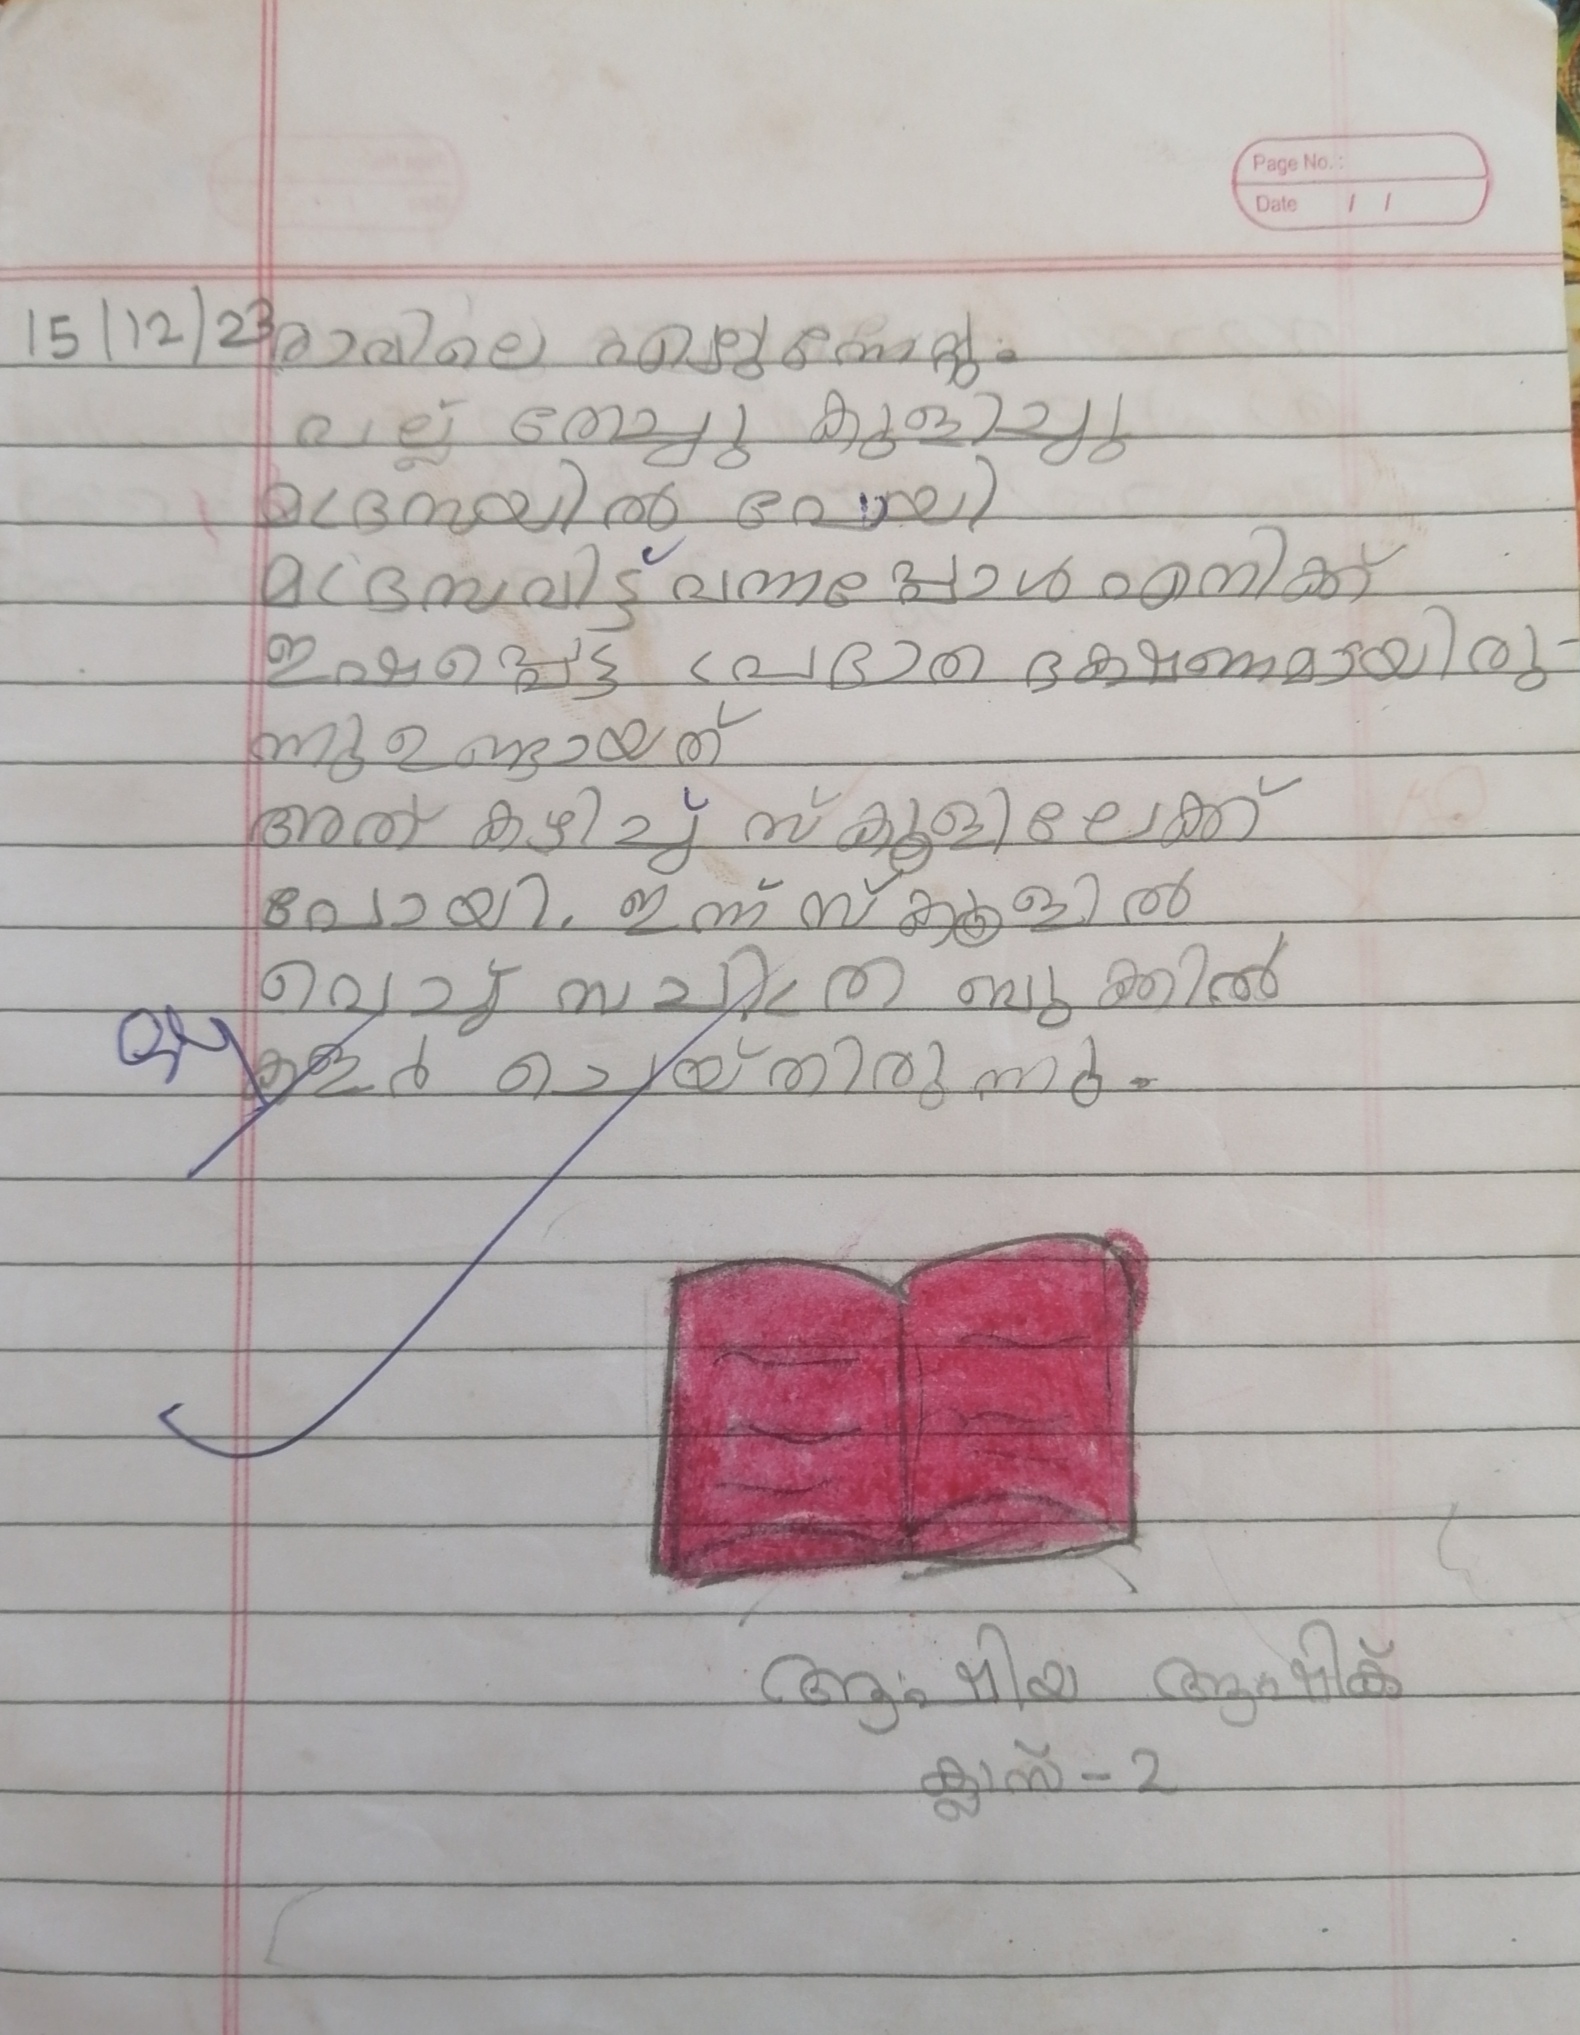 Page No. :
Date / /
15/12/23 രാവിലെ എഴുന്നേറ്റു.
പല്ല് തേച്ചു കുളിച്ചു
മദ്രസയിൽ പോയി
മദ്രസവിട്ട് വന്നപ്പോൾ എനിക്ക്
ഇഷ്ടപ്പെട്ട പ്രഭാത ഭക്ഷണമായിരു-
ന്നു ഉണ്ടായത്
അത് കഴിച്ച് സ്കൂളിലേക്ക്
പോയി. ഇന്ന് സ്കൂളിൽ
വെച്ച് സചിത്ര ബുക്കിൽ
കളർ ചെയ്തിരുന്നു.
ക്ലാസ് - 2